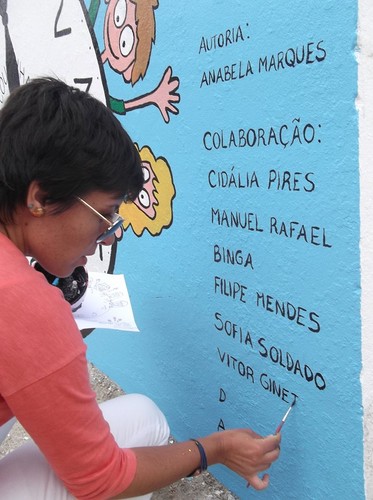 2
7
AUTORIA:
ANABELA MARQUES
COLABORAÇÃO:
CIDÁLIA PIRES
MANUEL RAFAEL
BINGA
FILIPE MENDES
SOFIA SOLDADO
VITOR GINET
D
A